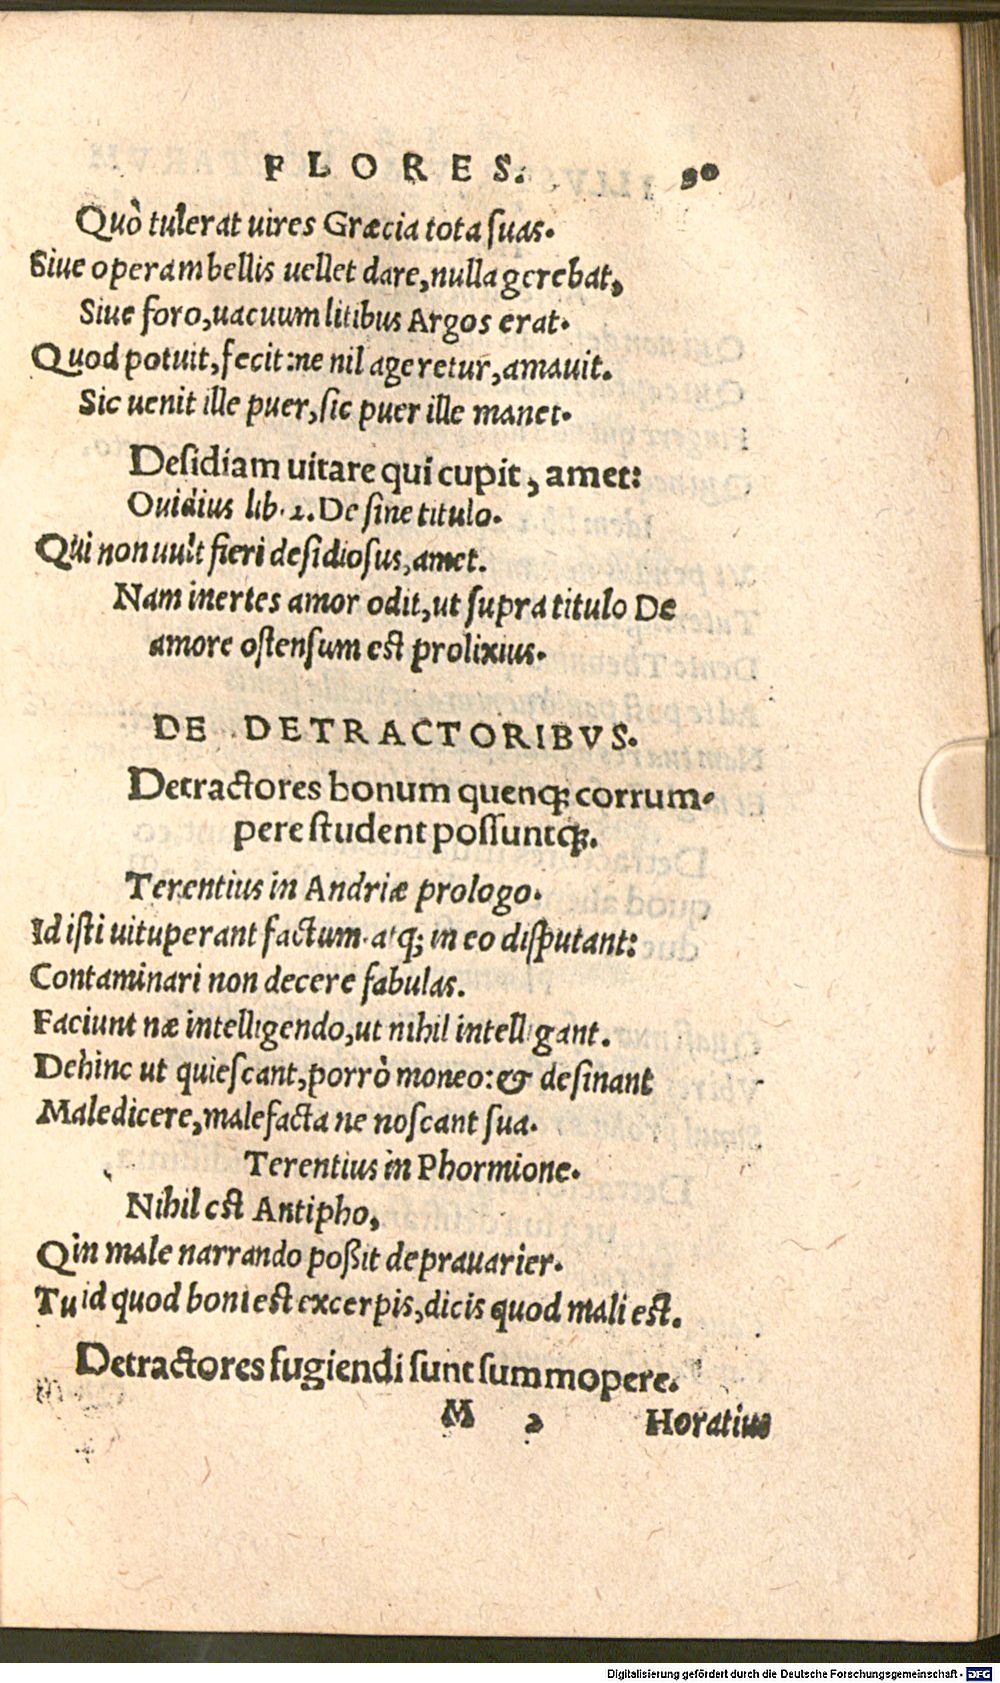 FLORES. 90
Quò tulerat uires Græcia tota ſuas.
Siue operam bellis uellet dare, nulla gerebat,
Siue foro, uacuum litibus Argos erat.
Quod potuit, fecit: ne nil ageretur, amauit.
Sic uenit ille puer, ſic puer ille manet.
Deſidiam uitare qui cupit, amet:
Ouidius lib. 1. De ſine titulo.
Qui non uult fieri deſidioſus, amet.
Nam inertes amor odit, ut ſupra titulo De
amore oſtenſum eſt prolixius.
DE DETRACTORIBVS.
Detractores bonum quenq; corrum-
pere ſtudent poſſuntq;.
Terentius in Andriæ prologo.
Id iſti uituperant factum. atq; in eo diſputant:
Contaminari non decere fabulas.
Faciunt næ intelligendo, ut nihil intelligant.
Dehinc ut quieſcant, porrò moneo: & deſinant
Maledicere, malefacta ne noſcant ſua.
Terentius in Phormione.
Nihil eſt Antipho,
Qin male narrando poßit deprauarier.
Tu id quod boni eſt excerpis, dicis quod mali eſt.
Detractores fugiendi ſunt ſummopere.
M 2 Horatius
Digitalisierung gefördert durch die Deutsche Forschungsgemeinschaft - DFG